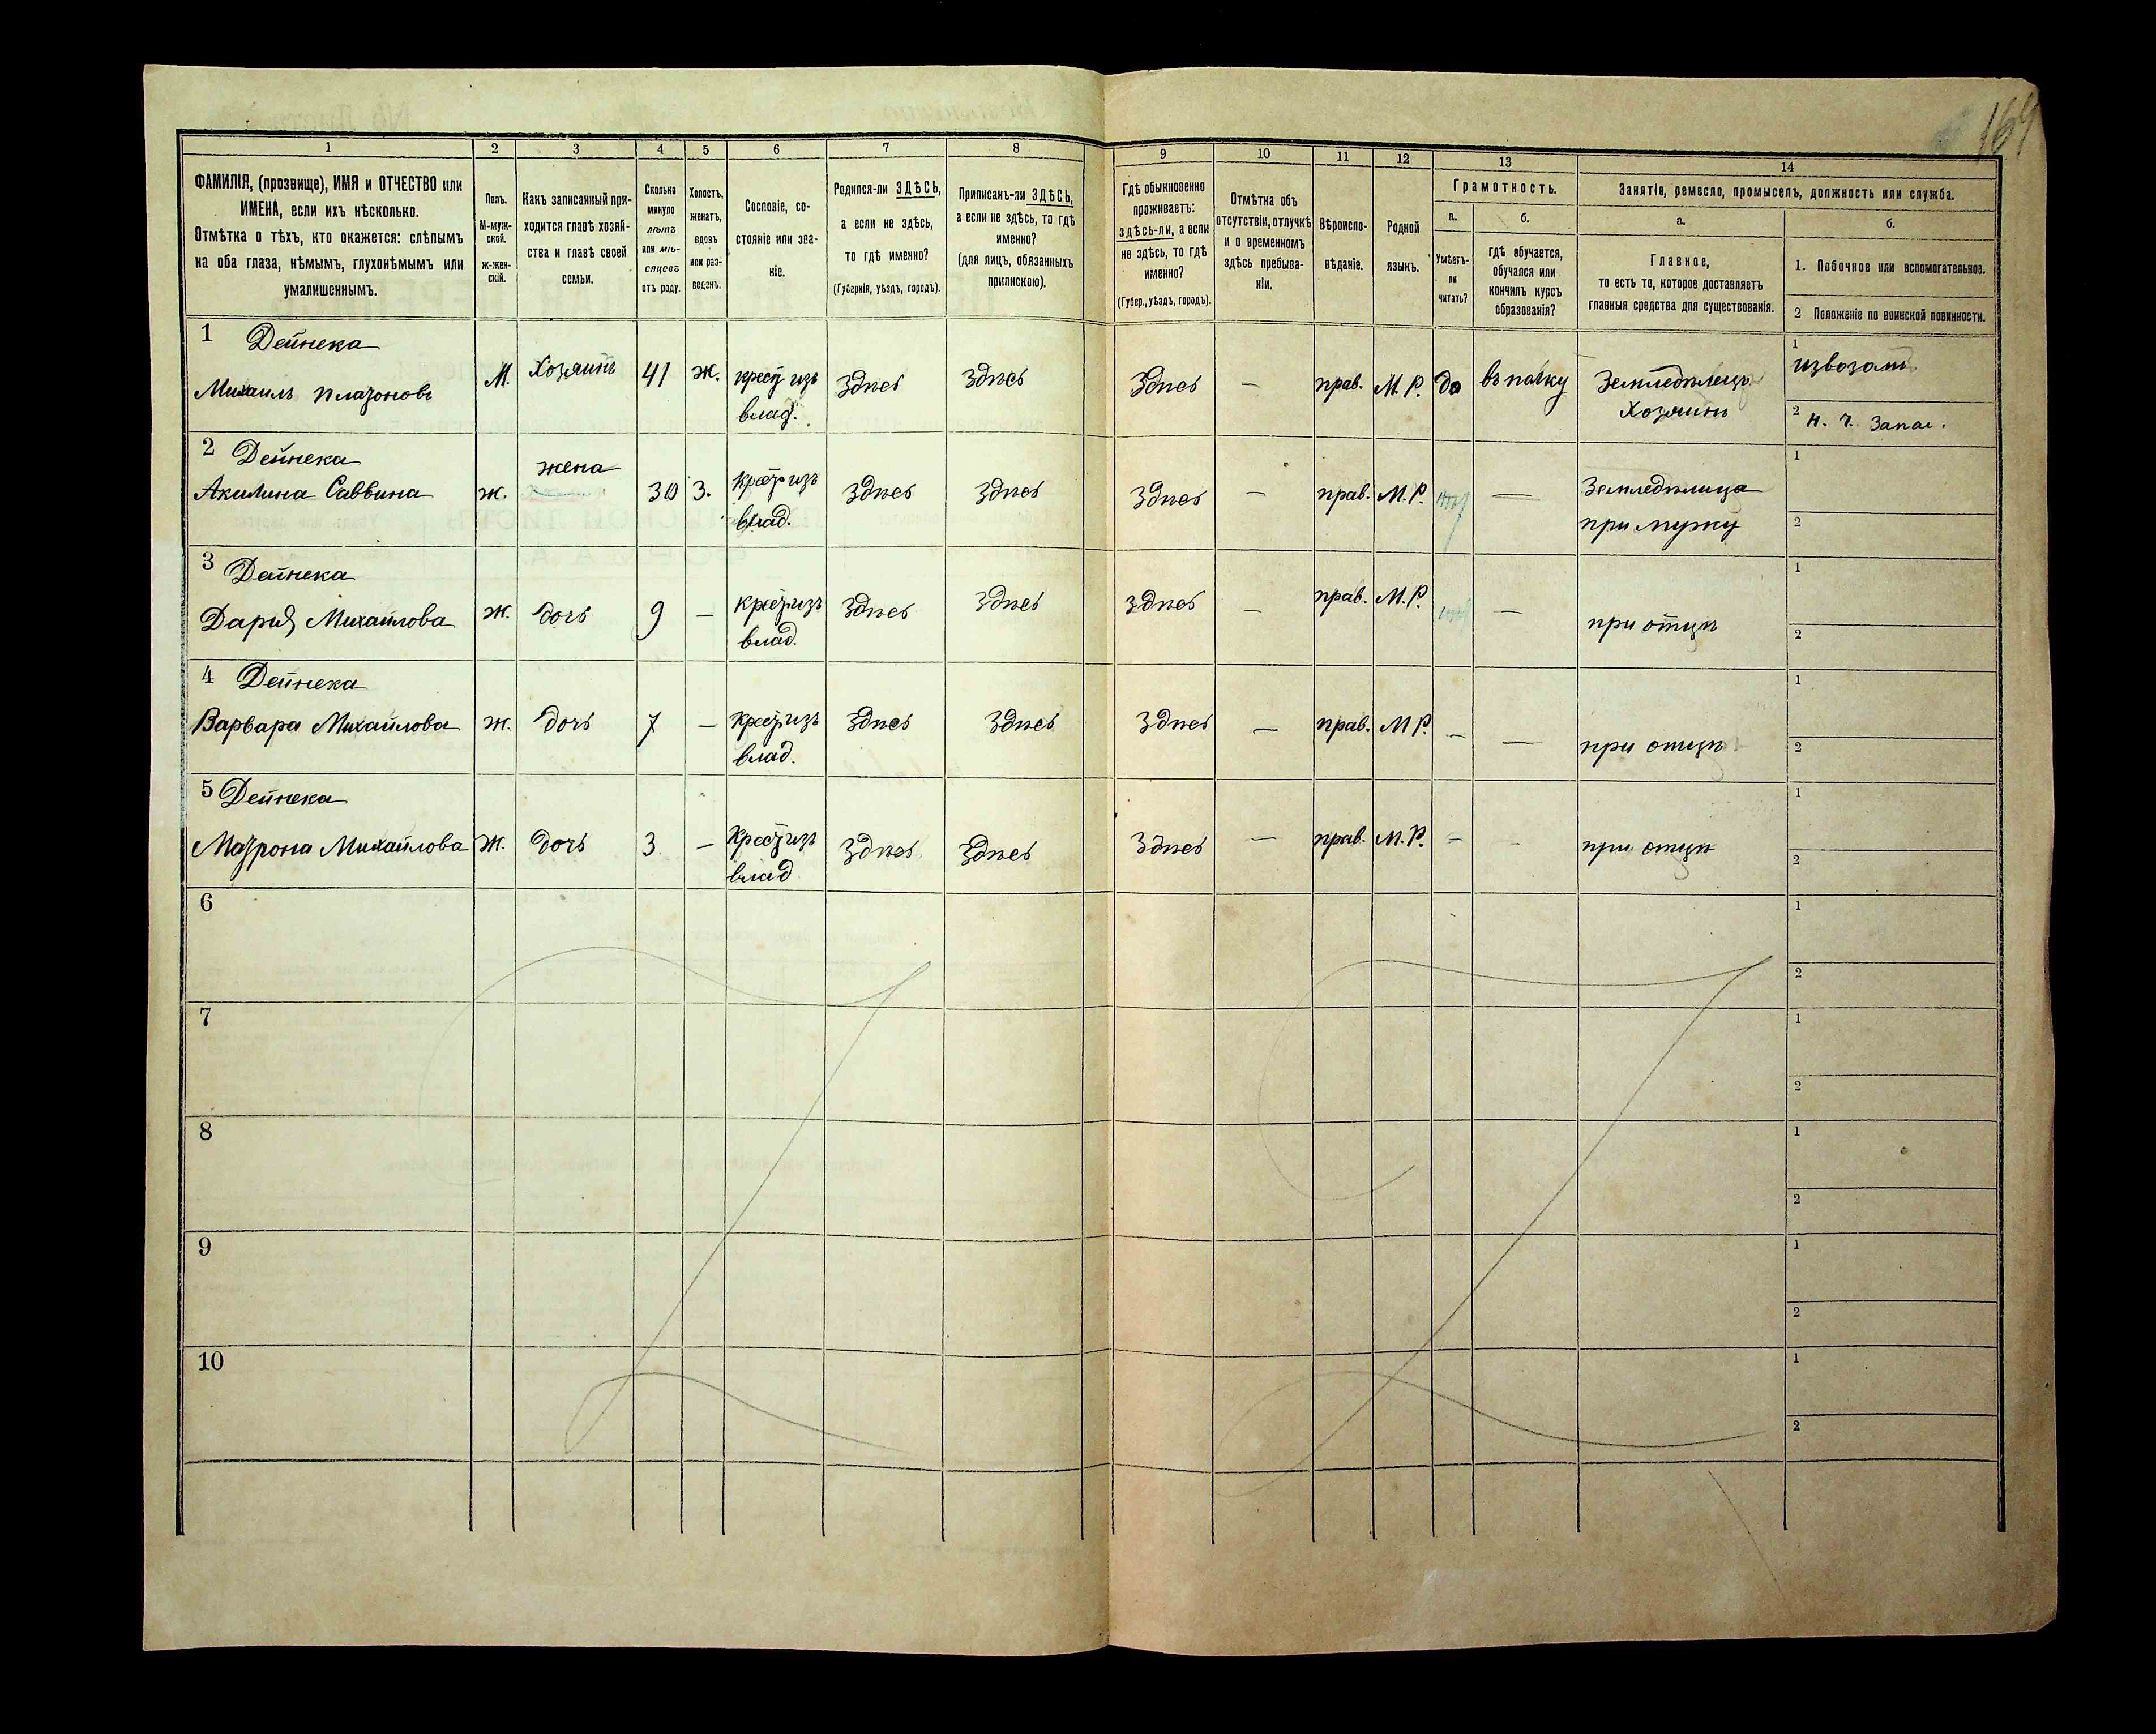 164
1 2 3 4 5 6 7 8 9 10 11 12 13 14
ФАМИЛІЯ, (прозвище), ИМЯ и ОТЧЕСТВО или
ИМЕНА, если ихъ нѣсколько.
Отмѣтка о тѣхъ, кто окажется: слѣпымъ
на оба глаза, нѣмымъ, глухонѣмымъ или
умалишеннымъ.
Полъ.
М-муж-
ской.
ж-жен-
скій.
Какъ записанный при-
ходится главѣ хозяй-
ства и главѣ своей
семьи.
Сколько
минуло
лѣтъ
или мѣ-
сяцевъ
отъ роду.
Холостъ,
женатъ,
вдовъ
или раз-
веденъ.
Сословіе, со-
стояніе или зва-
ніе.
Родился-ли ЗДѢСЬ,
а если не здѣсь,
то гдѣ именно?
(Губернія, уѣздъ, городъ).
Приписанъ-ли ЗДѢСЬ,
а если не здѣсь, то гдѣ
именно?
(для лицъ, обязанныхъ
припискою).
Гдѣ обыкновенно
проживаетъ:
здѣсь-ли, а если
не здѣсь, то гдѣ
именно?
(Губер., уѣздъ, городъ).
Отмѣтка объ
отсутствіи, отлучкѣ
и о временномъ
здѣсь пребыва-
ніи.
Вѣроиспо-
вѣданіе.
Родной
языкъ.
Грамотность.
а.
Умѣетъ-
ли
читать?
б.
гдѣ обучается,
обучался или
кончилъ курсъ
образованія?
Занятіе, ремесло, промыселъ, должность или служба.
а.
Главное,
то есть то, которое доставляетъ
главныя средства для существованія.
б.
1. Побочное или вспомогательное.
2 Положеніе по воинской повинности.
1 Дейнека
Михаилъ Платоновъ М. Хозяинъ 41 ж. крест изъ
влад.
Здѣсь Здѣсь Здѣсь — прав. М. Р. да въ полку Земледѣлецъ
Хозяинъ
1 извозомъ
2 н. ч. запас.
2 Дейнека
Акилина Саввина ж. жена 30 з. крест изъ
влад.
Здѣсь Здѣсь Здѣсь — прав. М. Р. нѣт — Земледѣлица
при мужу
1
2
3 Дейнека
Дарія Михайлова ж. дочь 9 — крест изъ
влад.
Здѣсь Здѣсь Здѣсь — прав. М. Р. нѣт — при отцѣ
1
2
4 Дейнека
Варвара Михайлова ж. дочь 7 — крест изъ
влад.
Здѣсь Здѣсь Здѣсь — прав. М Р. — — при отцѣ
1
2
5 Дейнека
Матрона Михайлова ж. дочь 3 — крест изъ
влад
Здѣсь Здѣсь Здѣсь — прав. М. Р. — — при отцѣ
1
2
6
1
2
7
1
2
8
1
2
9
1
2
10
1
2